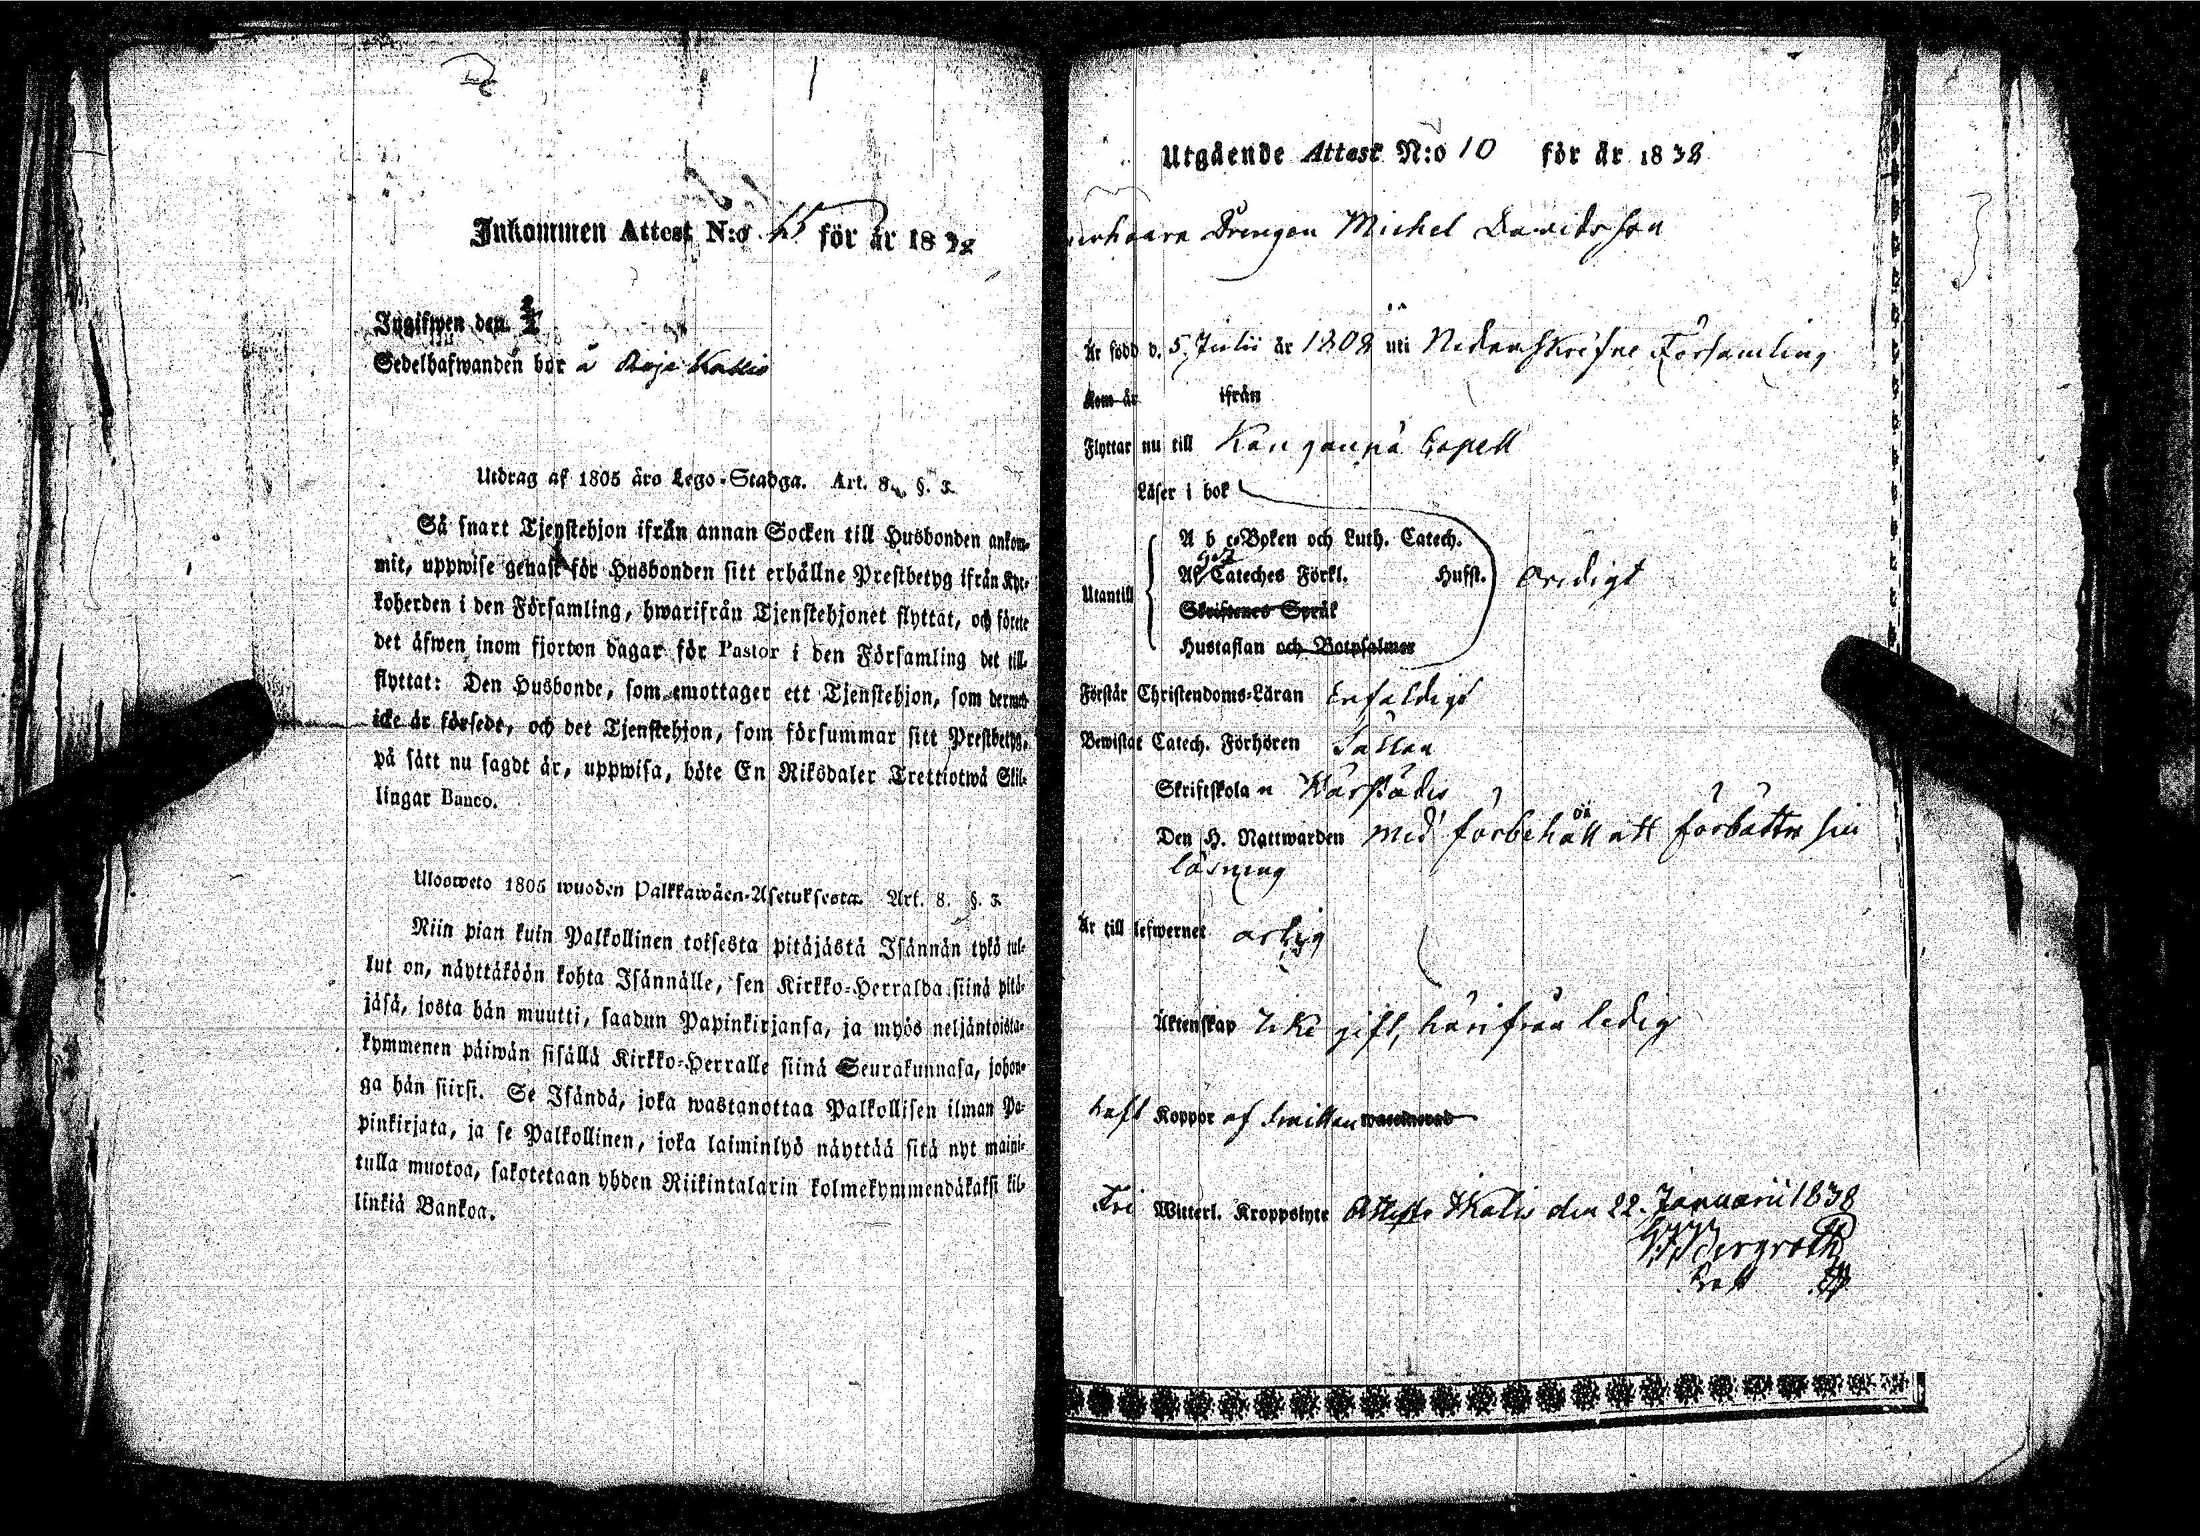 Inkommen Attest N:o 15 för år 1838
Ingifwen den
Sedelhafwanden bor å
Utdrag af 1805 års Lego-Stadga. Art. 8. §. 3.
Så snart Tjenstehjon ifrån annan Socken till Husbonden ankom-
mit, uppwise genast för Husbonden sitt erhållne Prestbetyg ifrån Kyr-
koherden i den Församling, hwarifrån Tjenstehjonet flyttat, och förete
det äfwen inom fjorton dagar för Pastor i den Församling det till-
flyttat: Den Husbonde, som emottager ett Tjenstehjon, som dermed
icke är försedt, och det Tjenstehjon, som försummar sitt Prestbetyg,
på sätt nu sagdt är, uppwisa, böte En Riksdaler Trettiotwå Skil-
lingar Banco.
Ulosweto 1805 wuoden Palkkawäen-Asetuksesta. Art. 8. §. 3.
Niin pian kuin Palkollinen toisesta pitäjästä Isännän tykö tul-
lut on, näyttäköön kohta Isännälle, sen Kirkko-Herralda siinä pitä-
jäsä, josta hän muutti, saadun Papinkirjansa, ja myös neljäntoista-
kymmenen päiwän sisällä Kirkko-Herralle siinä Seurakunnasa, johon-
ga hän siirsi. Se Isändä, joka wastanottaa Palkollisen ilman Pa-
pinkirjata, ja se Palkollinen, joka laiminlyö näyttää sitä nyt maini-
tulla muotoa, sakotetaan yhden Riikintalarin kolmekymmendäkaksi kil-
linkiä Bankoa.
Utgående Attest N:o 10 för år 1838
Drengen Michel Davidsson
Är född d. 5 Julii år 1808 uti Nedanskrifne Församling
Kom år ifrån
Flyttar nu till Kangonpä Capell
Läser i bok
Utantill
A b c-Boken och Luth. Catech.
Af Cateches Förkl. Husst. oredigt
Skriftenes Språk
Hustaflan och Botpsalmer
Förstår Christendoms-Läran Enfaldigt
Bewistat Catech. Förhören Sällan
Skriftskolan
Den H. Nattwarden med förbehåll att förbättra sin
läsning
Är till lefwernet ärlig
Äktenskap Icke gift, härifrån ledig
haft Koppor af Smittan
Fri Witterl. Kroppslyte den 22. Januarii 1838
Bergroth